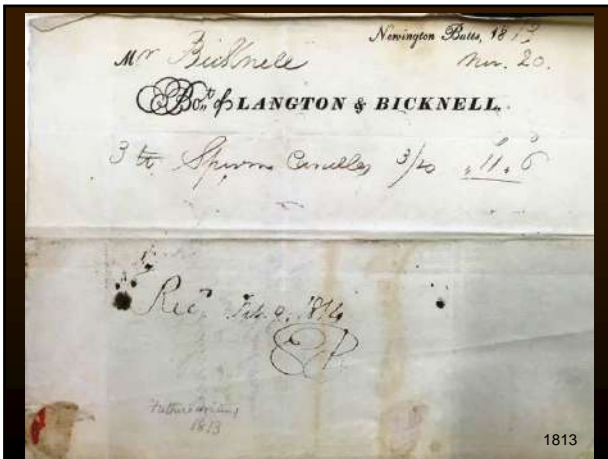 Newington Butts, 1813
Mr Bicknell Nov. 20.
Bo.t of LANGTON & BICKNELL.
3 lb Sperm Candles 3/10 " 11 " 6
Rec.d Feb. 9. 1814
1813
1813